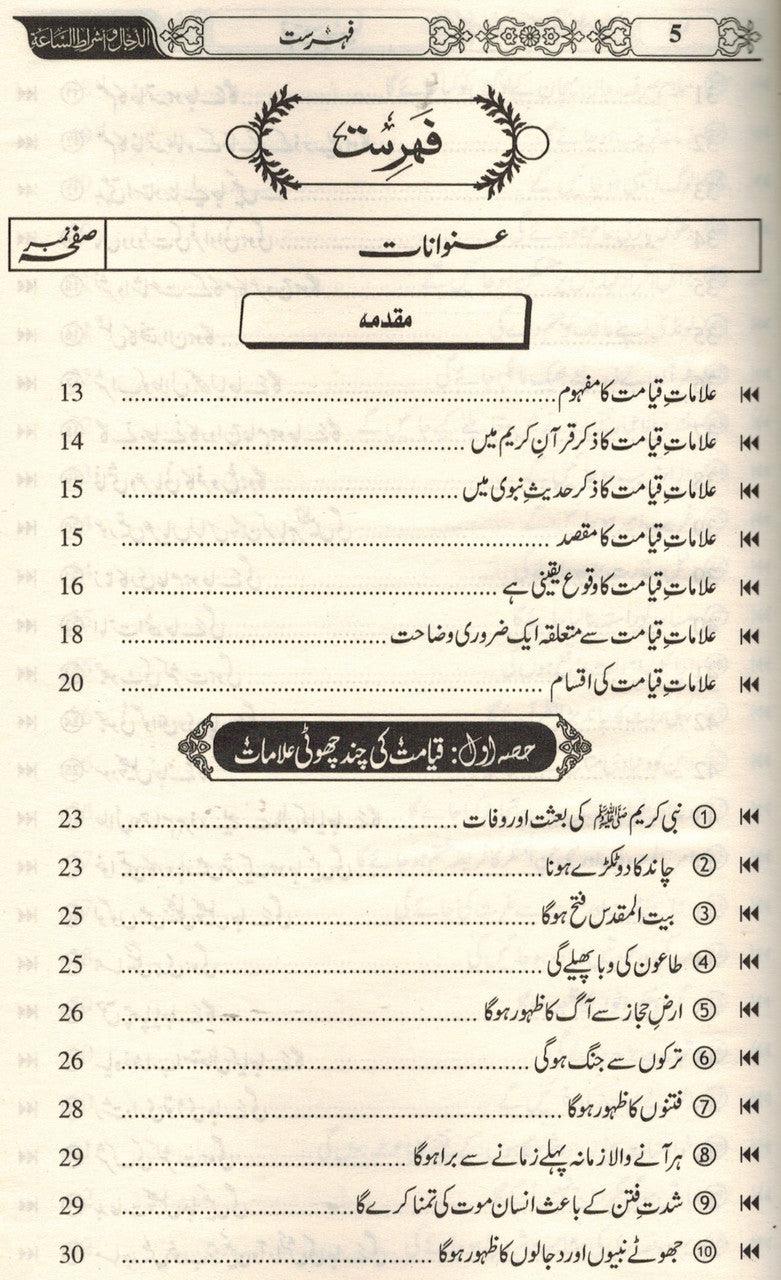 5 فہرست الدجال واشراط الساعة
فہرست
عنوانات صفحہ نمبر
مقدمہ
علاماتِ قیامت کا مفہوم 13
علاماتِ قیامت کا ذکر قرآنِ کریم میں 14
علاماتِ قیامت کا ذکر حدیثِ نبوی میں 15
علاماتِ قیامت کا مقصد 15
علاماتِ قیامت کا وقوع یقینی ہے 16
علاماتِ قیامت سے متعلقہ ایک ضروری وضاحت 18
علاماتِ قیامت کی اقسام 20
حصہ اول: قیامت کی چند چھوٹی علامات
① نبی کریم ﷺ کی بعثت اور وفات 23
② چاند کا دو ٹکڑے ہونا 23
③ بیت المقدس فتح ہوگا 25
④ طاعون کی وبا پھیلے گی 25
⑤ ارضِ حجاز سے آگ کا ظہور ہوگا 26
⑥ ترکوں سے جنگ ہوگی 26
⑦ فتنوں کا ظہور ہوگا 28
⑧ ہر آنے والا زمانہ پہلے زمانے سے برا ہوگا 29
⑨ شدتِ فتن کے باعث انسان موت کی تمنا کرے گا 29
⑩ جھوٹے نبیوں اور دجالوں کا ظہور ہوگا 30